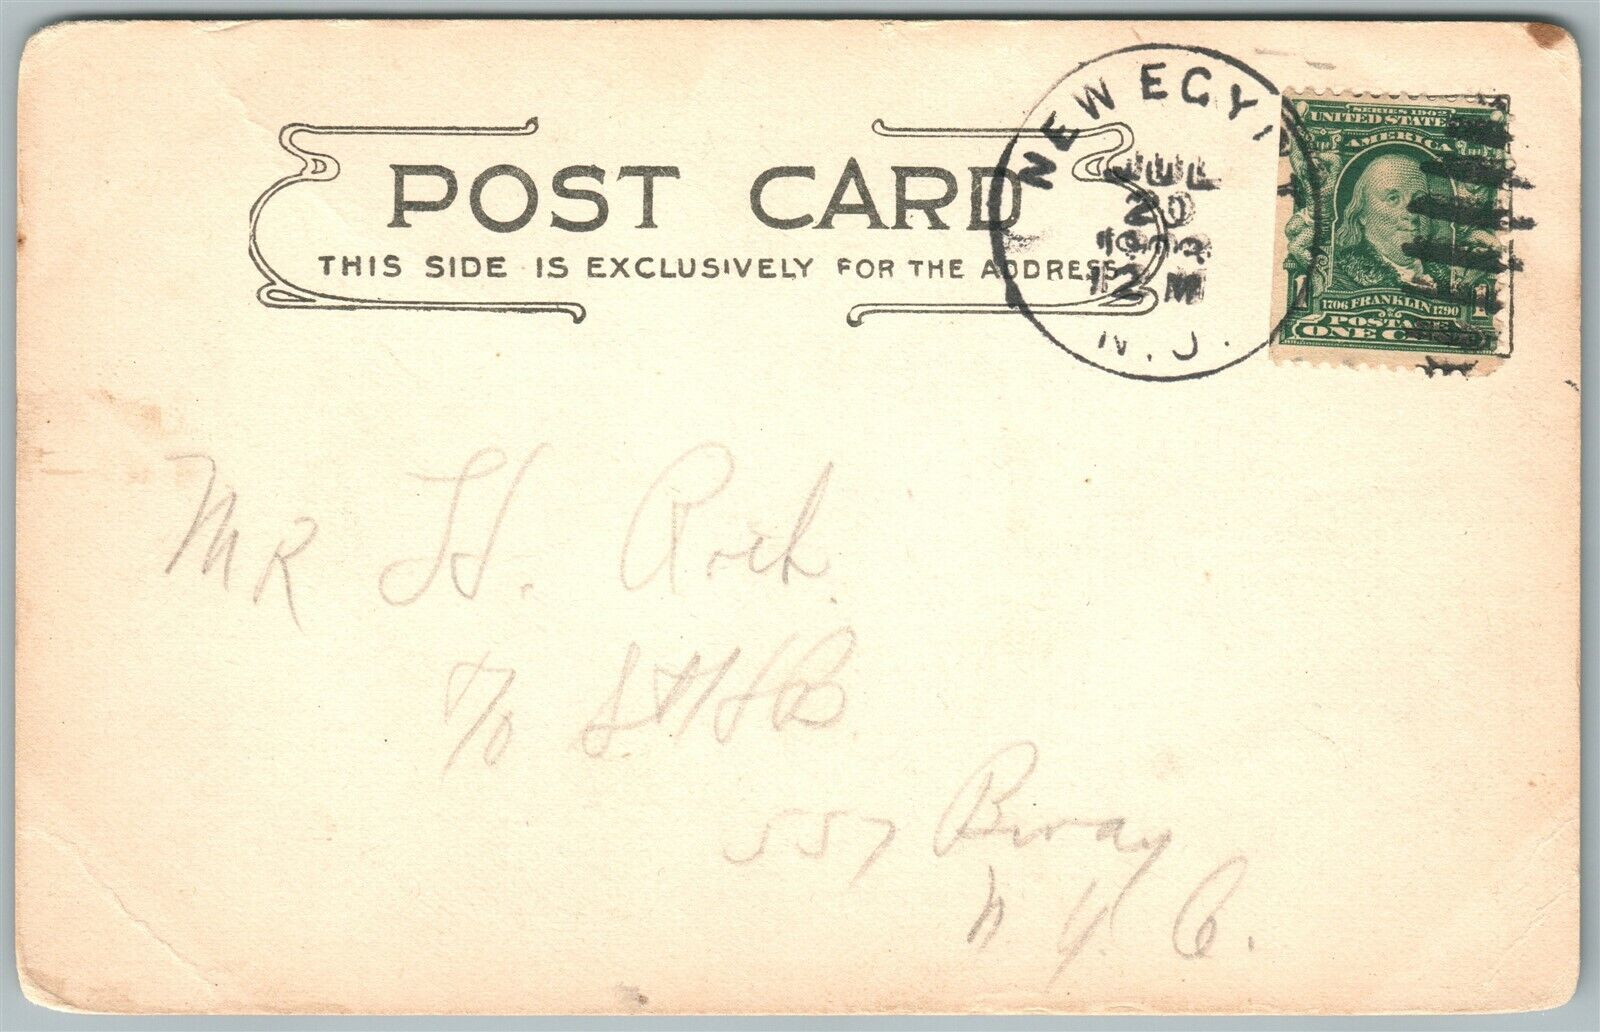 POST CARD
THIS SIDE IS EXCLUSIVELY FOR THE ADDRESS
NEW EGYPT
20
12 M
N.J.
SERIES 1902
UNITED STATES
AMERICA
1706 FRANKLIN 1790
POSTAGE
ONE CENT
MR H.
557 Bway
N.Y.C.